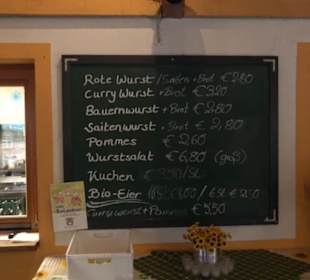 Rote Wurst / Saiten + Brot € 2,60
Curry Wurst + Brot € 3,20
Bauernwurst + Brot € 2,80
Saitenwurst + Brot € 2,80
Pommes € 2,60
Wurstsalat € 6,80 (groß)
Kuchen
Bio-Eier / 6 St € 2,50
Currywurst + Pommes € 5,50